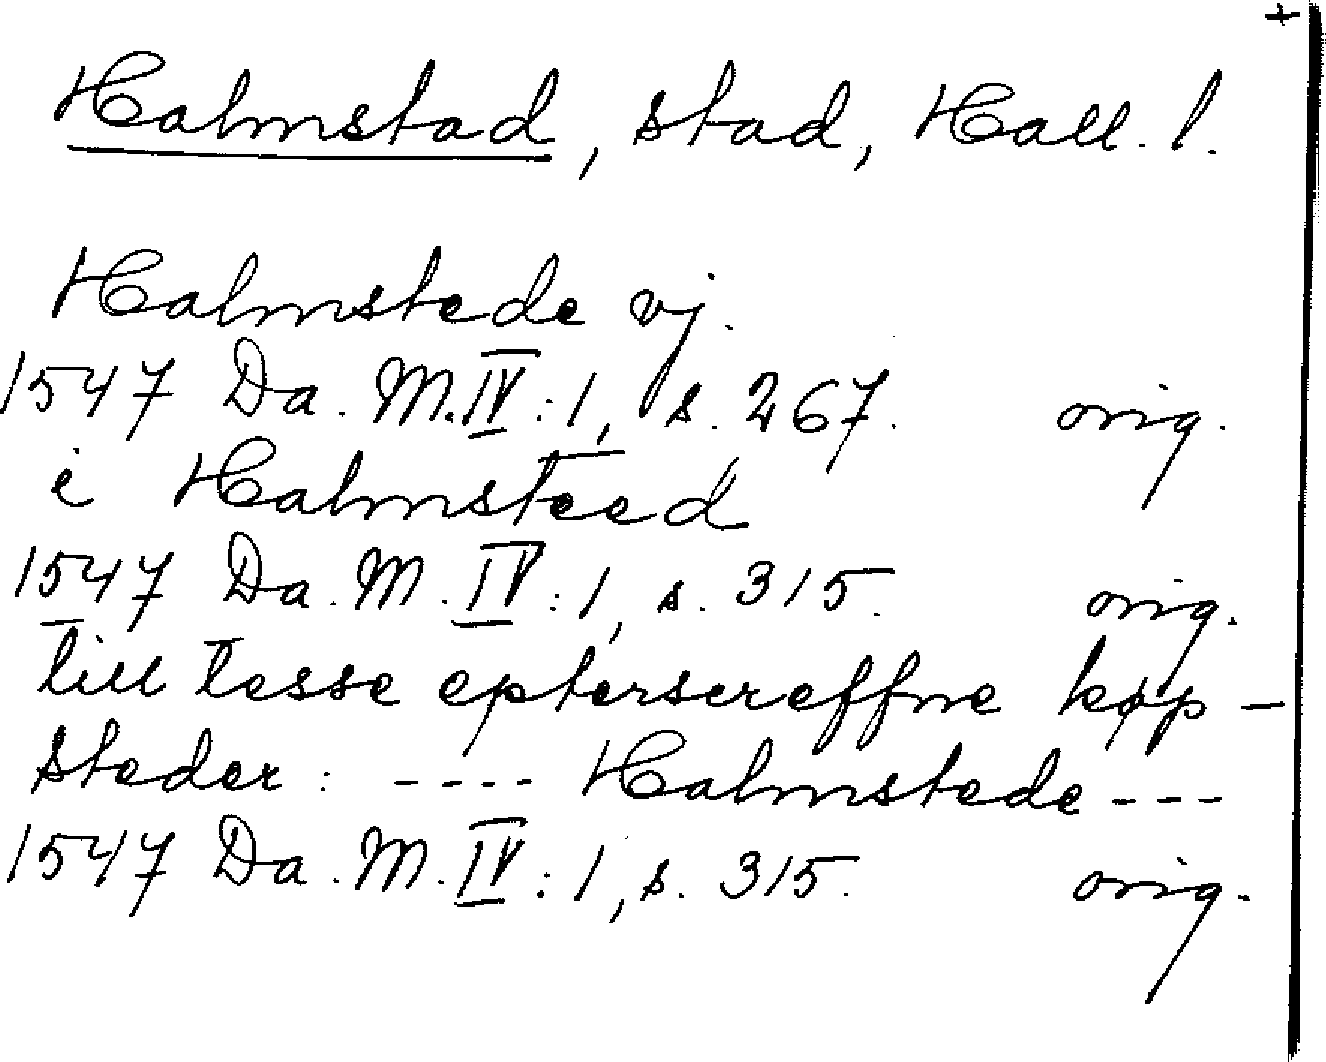 +
Halmstad, stad, Hall. l.
Halmstede vj.
1547 Da. M. IV:1, s. 267. orig.
i Halmsteed
1547 Da. M. IV:1, s. 315. orig.
till tesse epterscreffne køp-
steder: ---- Halmstede ---
1547 Da. M. IV:1, s. 315. orig.